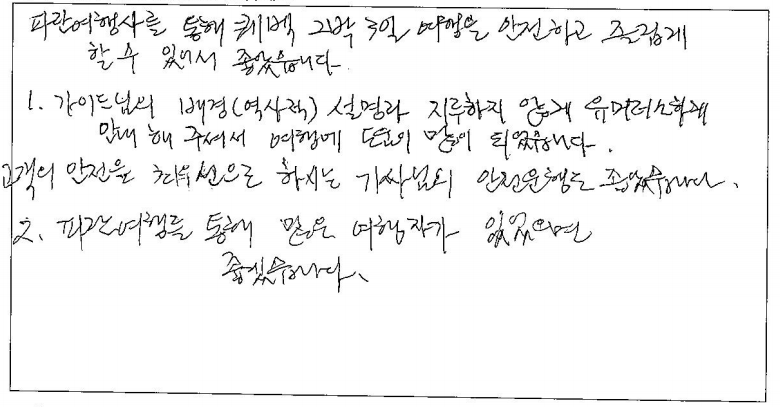 파란여행사를 통해 퀘백 2박 3일 여행을 안전하고 즐겁게
할 수 있어서 좋았습니다.
1. 가이드님의 배경(역사적) 설명과 지루하지 않게 유머러스하게
안내 해 주셔서 여행에 도움이 많이 되었습니다.
고객의 안전을 최우선으로 하시는 기사님의 안전운행도 좋았습니다.
2. 파란여행을 통해 많은 여행자가 있었으면
좋겠습니다.